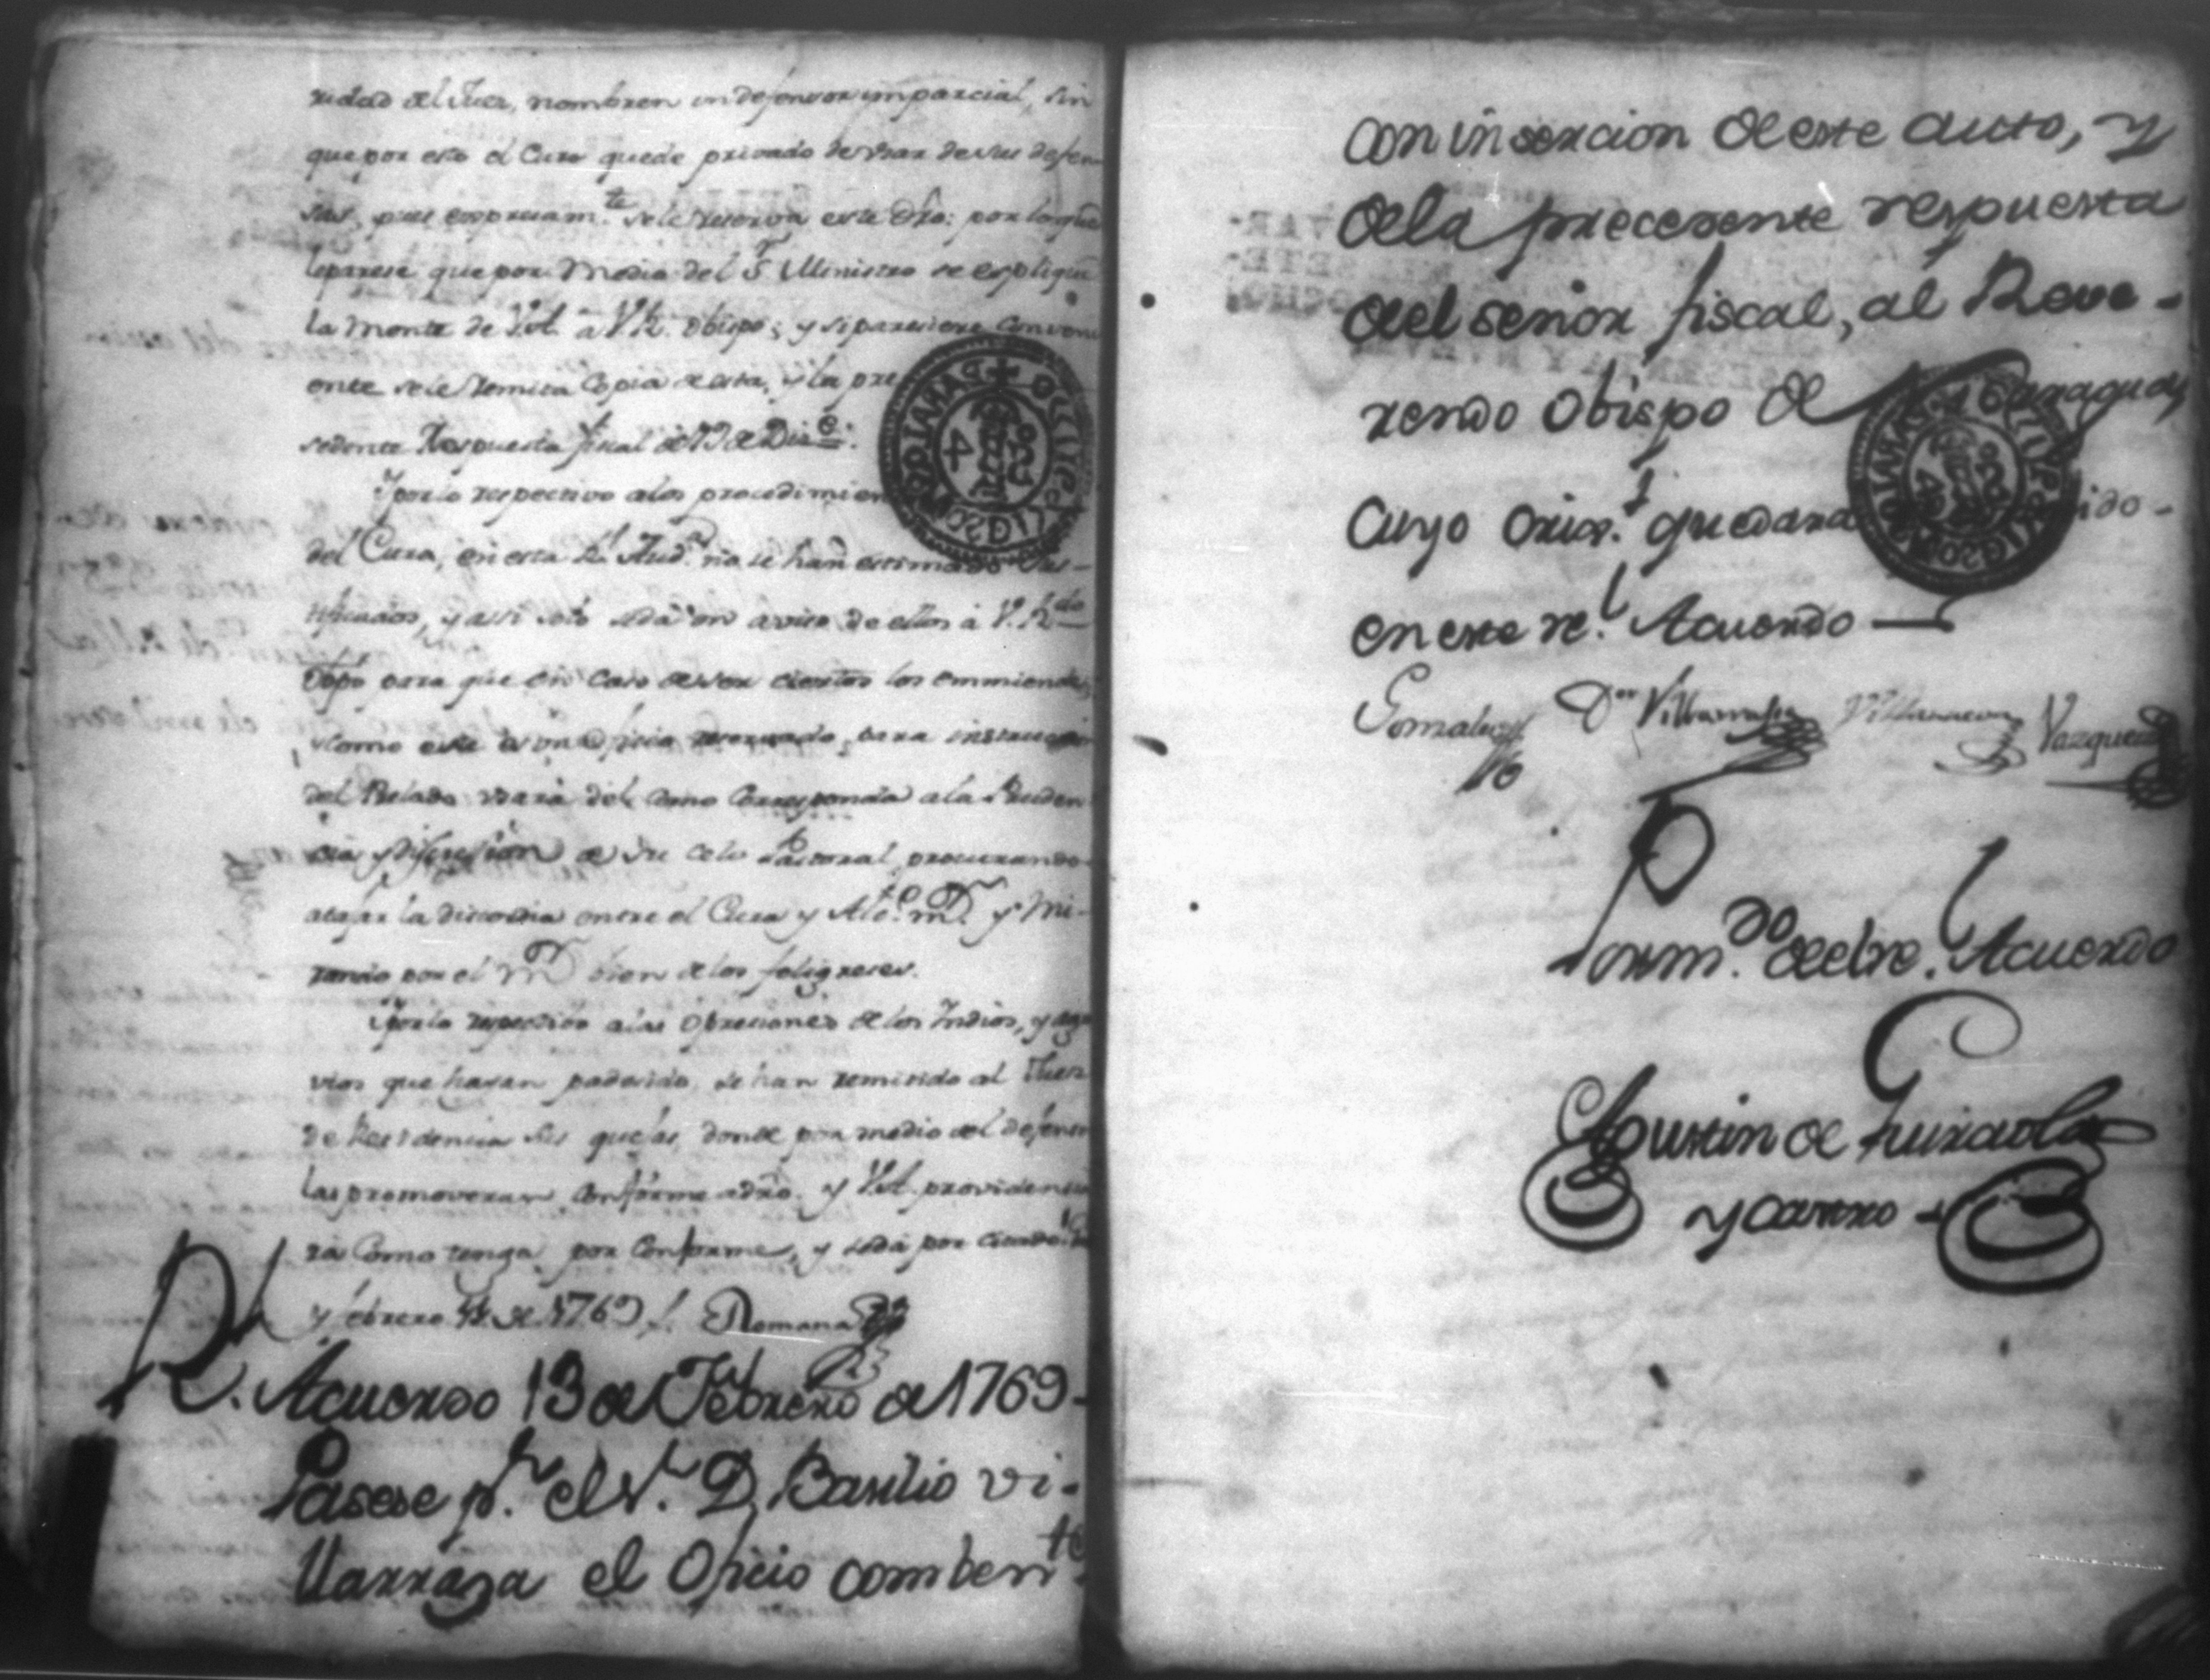 ridad el Juez, nombren un defensor imparcial, sin
que por esto el Cura quede privado de usar de sus defen
sas, pues expresam.te se le reserva este dro: por lo que
le parese que por medio del S.r Ministro se esplique
la mente de V.A. á V.R. obispo; y si paresiere conveni
ente se le remita Copia de esta, y la pre
sedente Respuesta fiscal de 19 de Dis.e
Y por lo respectivo a los procedimien
del Cura, en esta R.l Aud.a no se han estimado Jus-
tificados, y assi solo se dá un aviso de ellos á V. R.do
Obpo para que en caso de ser ciertos los emmiende,
y como este es un oficio reservado, para instruccion
del Prelado usará del como corresponda a la Pruden
cia y discresion de su celo Pastoral, procurando
atajar la discordia entre el Cura y Alc.e m.r y mi-
rando por el m.r bien de los feligreses.
Y por lo respectivo a las opresiones de los Indios, y agra
vios que hayan padesido, se han remitido al Juez
de Residencia sus quejas, donde por medio del defensor
las promoveran conforme a dro. y V.A. providencia
rá como tenga por conforme, y
y febrero 11 de 1769 Romana
R.l Acuerdo 13 de Febrero de 1769-
Pasese p.r el S.r D. Basilio Vi-
llarraza el Oficio comben.te
con insercion de este auto, y
de la precedente respuesta
del señor fiscal, al Reve-
rendo Obispo de Nicaragua
cuyo orig.l quedara ido-
en este re.l Acuerdo —
Gonzalez D.or Villarrasa Villarreal Vazquez
Por m.do del re.l Acuerdo
Agustin de Guiraola
y Castro